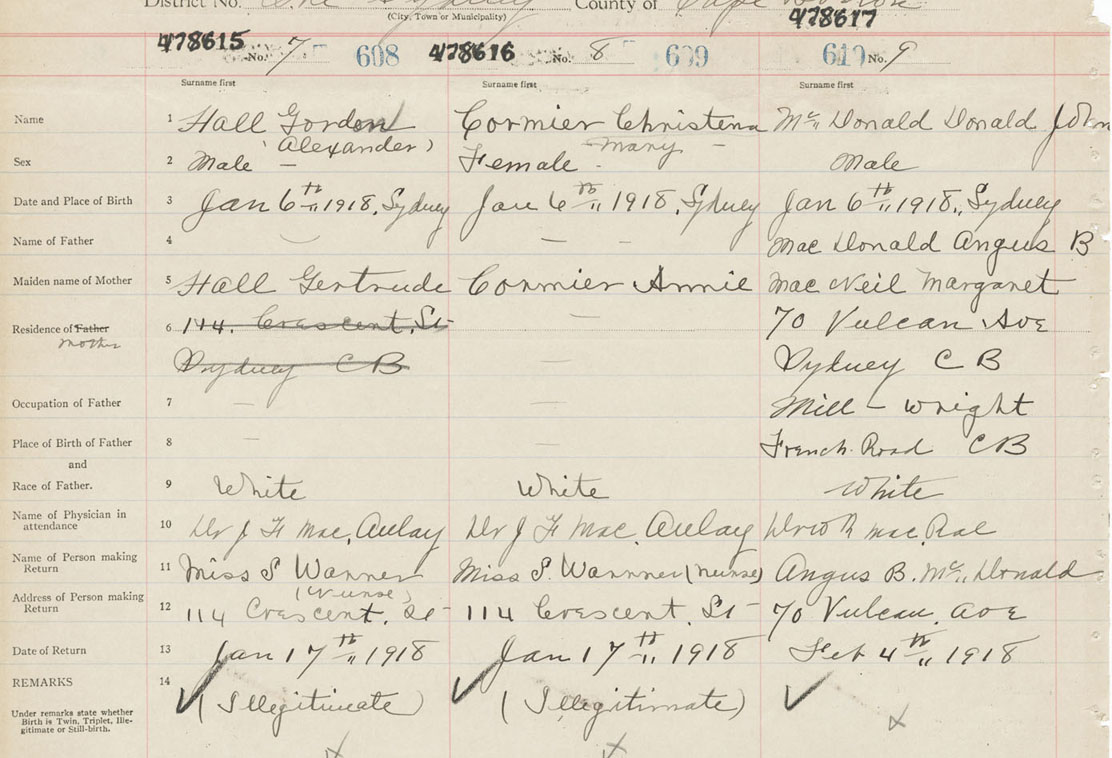 District No. Sydney County of Cape Breton
(City, Town or Municipality)
478615 No. 7 608 478616 No. 8 609 478617 610 No. 9
Surname first Surname first Surname first
Name 1 Hall Gordon Cormier Christena Mc Donald Donald John
(Alexander) Mary
Sex 2 Male Female Male
Date and Place of Birth 3 Jan 6th 1918, Sydney Jan 6th 1918, Sydney Jan 6th 1918, Sydney
Name of Father 4 — — — Mac Donald Angus B
Maiden name of Mother 5 Hall Gertrude Cormier Annie Mac Neil Margaret
Residence of Father 6 114. Crescent, St — 70 Vulcan Ave
Mother
Sydney C B — Sydney C B
Occupation of Father 7 — — Mill-wright
Place of Birth of Father 8 — — French Road C B
and
Race of Father. 9 White White White
Name of Physician in attendance 10 Dr J F Mac, Aulay Dr J F Mac, Aulay Mac Rae
Name of Person making Return 11 Miss S Wanner Miss S. Wannner (Nurse) Angus B. Mc Donald
(Nurse)
Address of Person making Return 12 114 Crescent, St 114 Crescent, St 70 Vulcan, Ave
Date of Return 13 Jan 17th 1918 Jan 17th 1918 Feb 4th 1918
REMARKS 14 ✓ (Illegitimate) ✓ (Illegitimate) ✓
Under remarks state whether
Birth is Twin, Triplet, Ille-
gitimate or Still-birth.
x x x